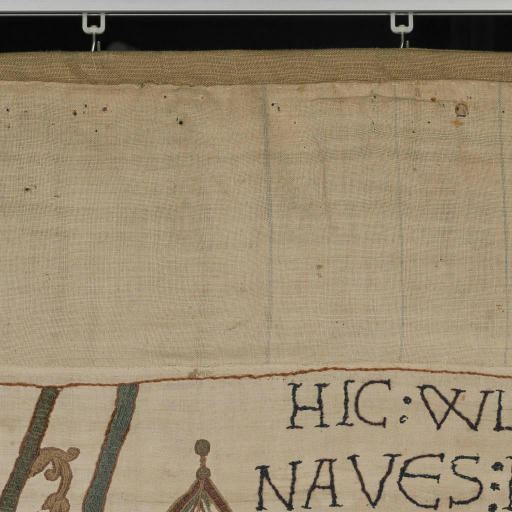 HIC : WI
NAVES :